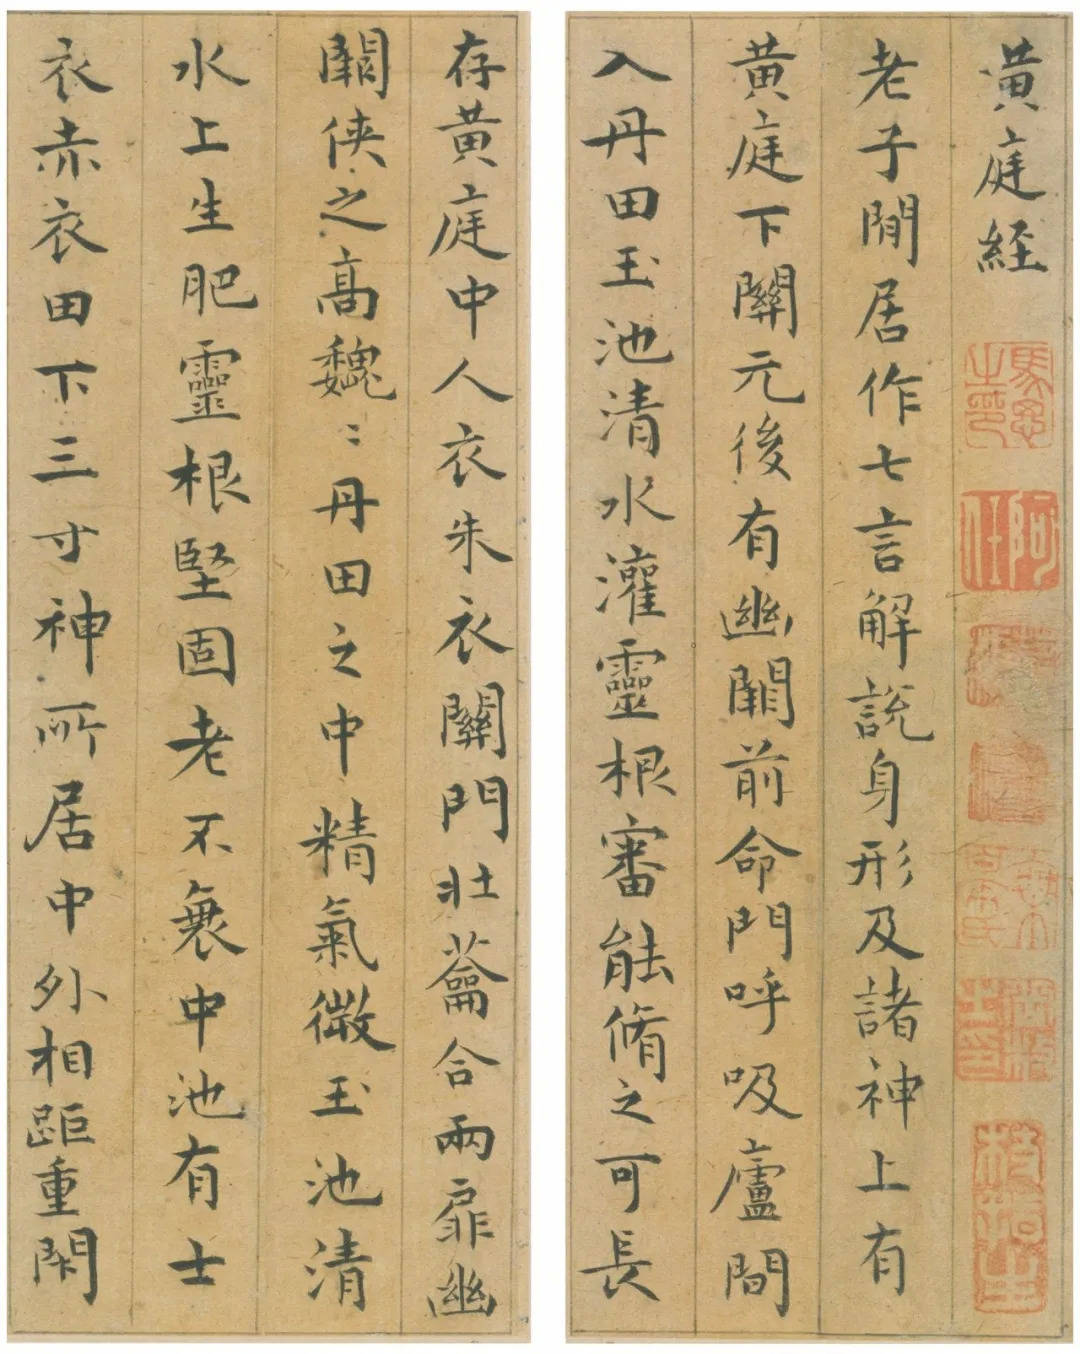 黃庭経
老子閒居作七言解說身形及諸神上有
黃庭下關元後有幽闕前命門呼吸廬間
入丹田玉池清水灌靈根審能脩之可長
存黃庭中人衣朱衣關門壮蘥合兩扉幽
闕俠之高魏:丹田之中精氣微玉池清
水上生肥靈根堅固老不衰中池有士
衣赤衣田下三寸神所居中外相距重閇